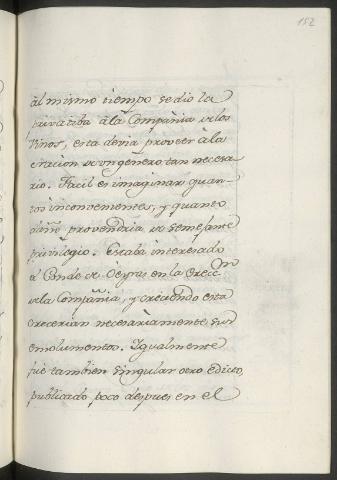 152
àl mismo tiempo se dio la
privatiba à la Compañia de los
Vinos, esta devia proveer à la
de un genero tan necesa-
rio. Facil es imaginar quan-
tos inconvenientes, y quanto
daño provendria de semejante
privilegio. Estaba interesado
el Conde de Oeyras en la Erecc.on
de la Compañia, y creciendo esta
crecerian necesariamente sus
emolumentos. Igualmente
fuè tambien singular otro edicto,
publicado poco despues en el